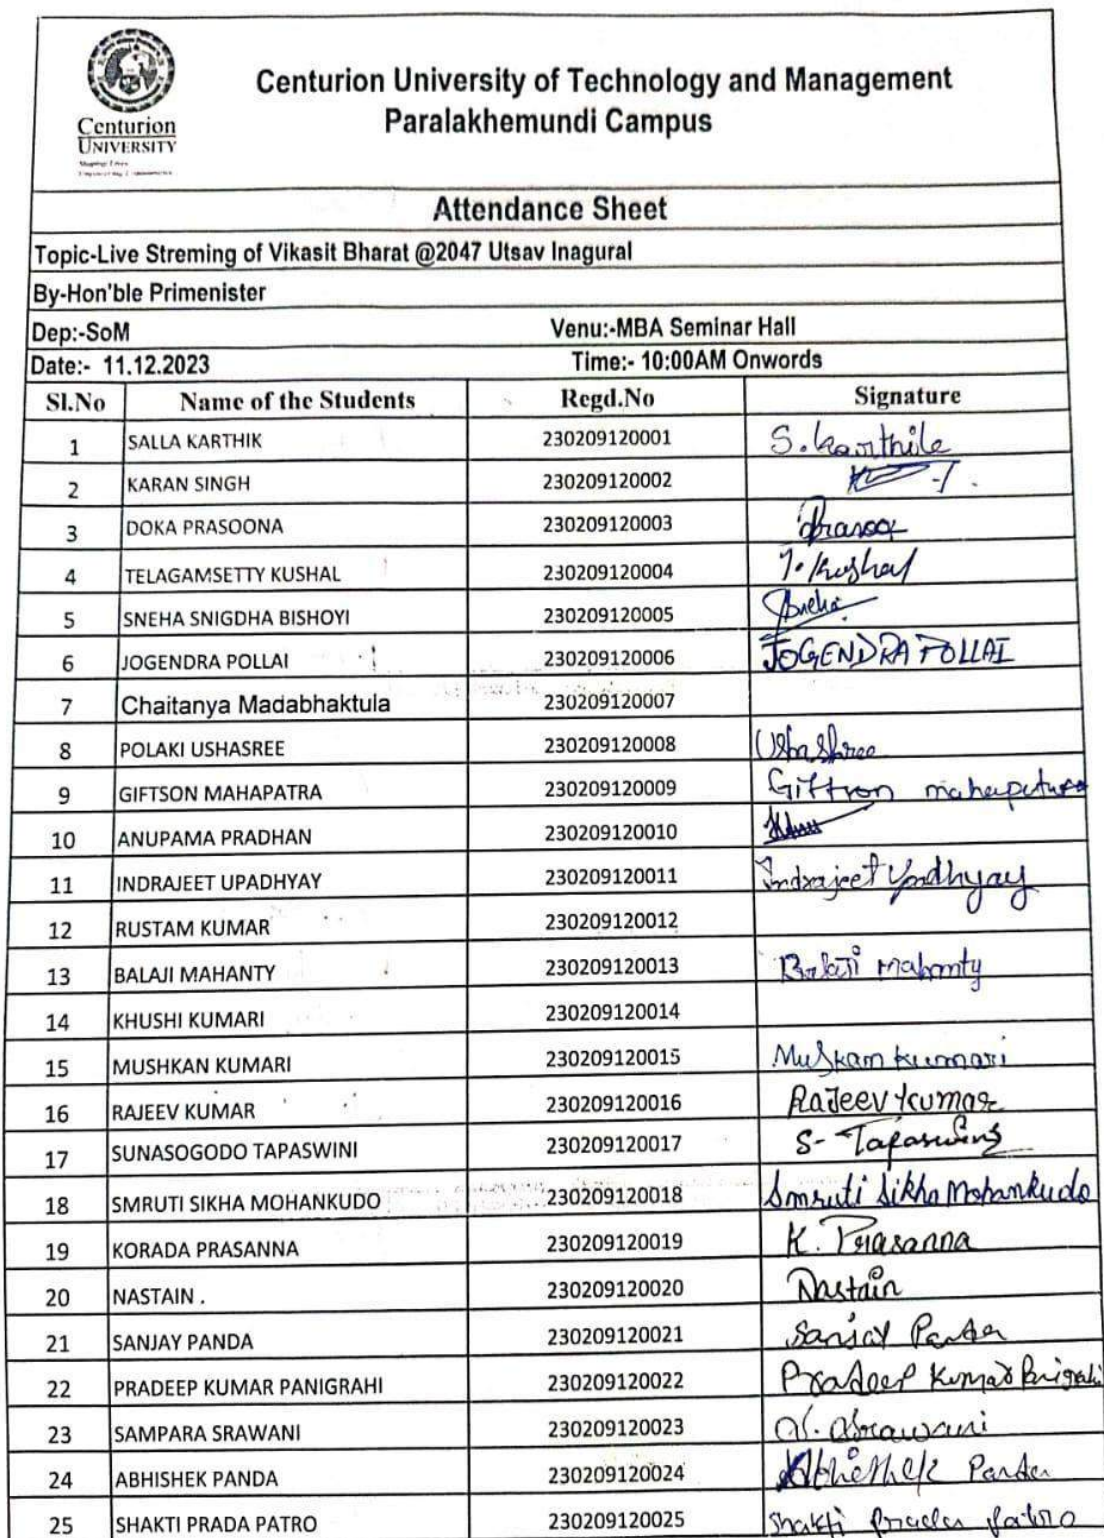 Centurion
UNIVERSITY
Shaping Lives...
Empowering Communities...
Centurion University of Technology and Management
Paralakhemundi Campus
Attendance Sheet
Topic-Live Streming of Vikasit Bharat @2047 Utsav Inagural
By-Hon'ble Primenister
Dep:-SoM Venu:-MBA Seminar Hall
Date:- 11.12.2023 Time:- 10:00AM Onwords
Sl.No Name of the Students Regd.No Signature
1 SALLA KARTHIK 230209120001 S. Karthik
2 KARAN SINGH 230209120002
3 DOKA PRASOONA 230209120003
4 TELAGAMSETTY KUSHAL 230209120004 T. Kushal
5 SNEHA SNIGDHA BISHOYI 230209120005 Sneha
6 JOGENDRA POLLAI 230209120006 JOGENDRA POLLAI
7 Chaitanya Madabhaktula 230209120007
8 POLAKI USHASREE 230209120008 Usha Shree
9 GIFTSON MAHAPATRA 230209120009 Giftson mahapatra
10 ANUPAMA PRADHAN 230209120010
11 INDRAJEET UPADHYAY 230209120011 Indrajeet Upadhyay
12 RUSTAM KUMAR 230209120012
13 BALAJI MAHANTY 230209120013 Balaji Mahanty
14 KHUSHI KUMARI 230209120014
15 MUSHKAN KUMARI 230209120015 Muskan Kumari
16 RAJEEV KUMAR 230209120016 Rajeev Kumar
17 SUNASOGODO TAPASWINI 230209120017 S- Tapaswini
18 SMRUTI SIKHA MOHANKUDO 230209120018 Smruti Sikha Mohankudo
19 KORADA PRASANNA 230209120019 K. Prasanna
20 NASTAIN . 230209120020 Nastain
21 SANJAY PANDA 230209120021 Sanjay Panda
22 PRADEEP KUMAR PANIGRAHI 230209120022 Pradeep Kumar Panigrahi
23 SAMPARA SRAWANI 230209120023 S. Srawani
24 ABHISHEK PANDA 230209120024 Abhishek Panda
25 SHAKTI PRADA PATRO 230209120025 Shakti Prada Patro